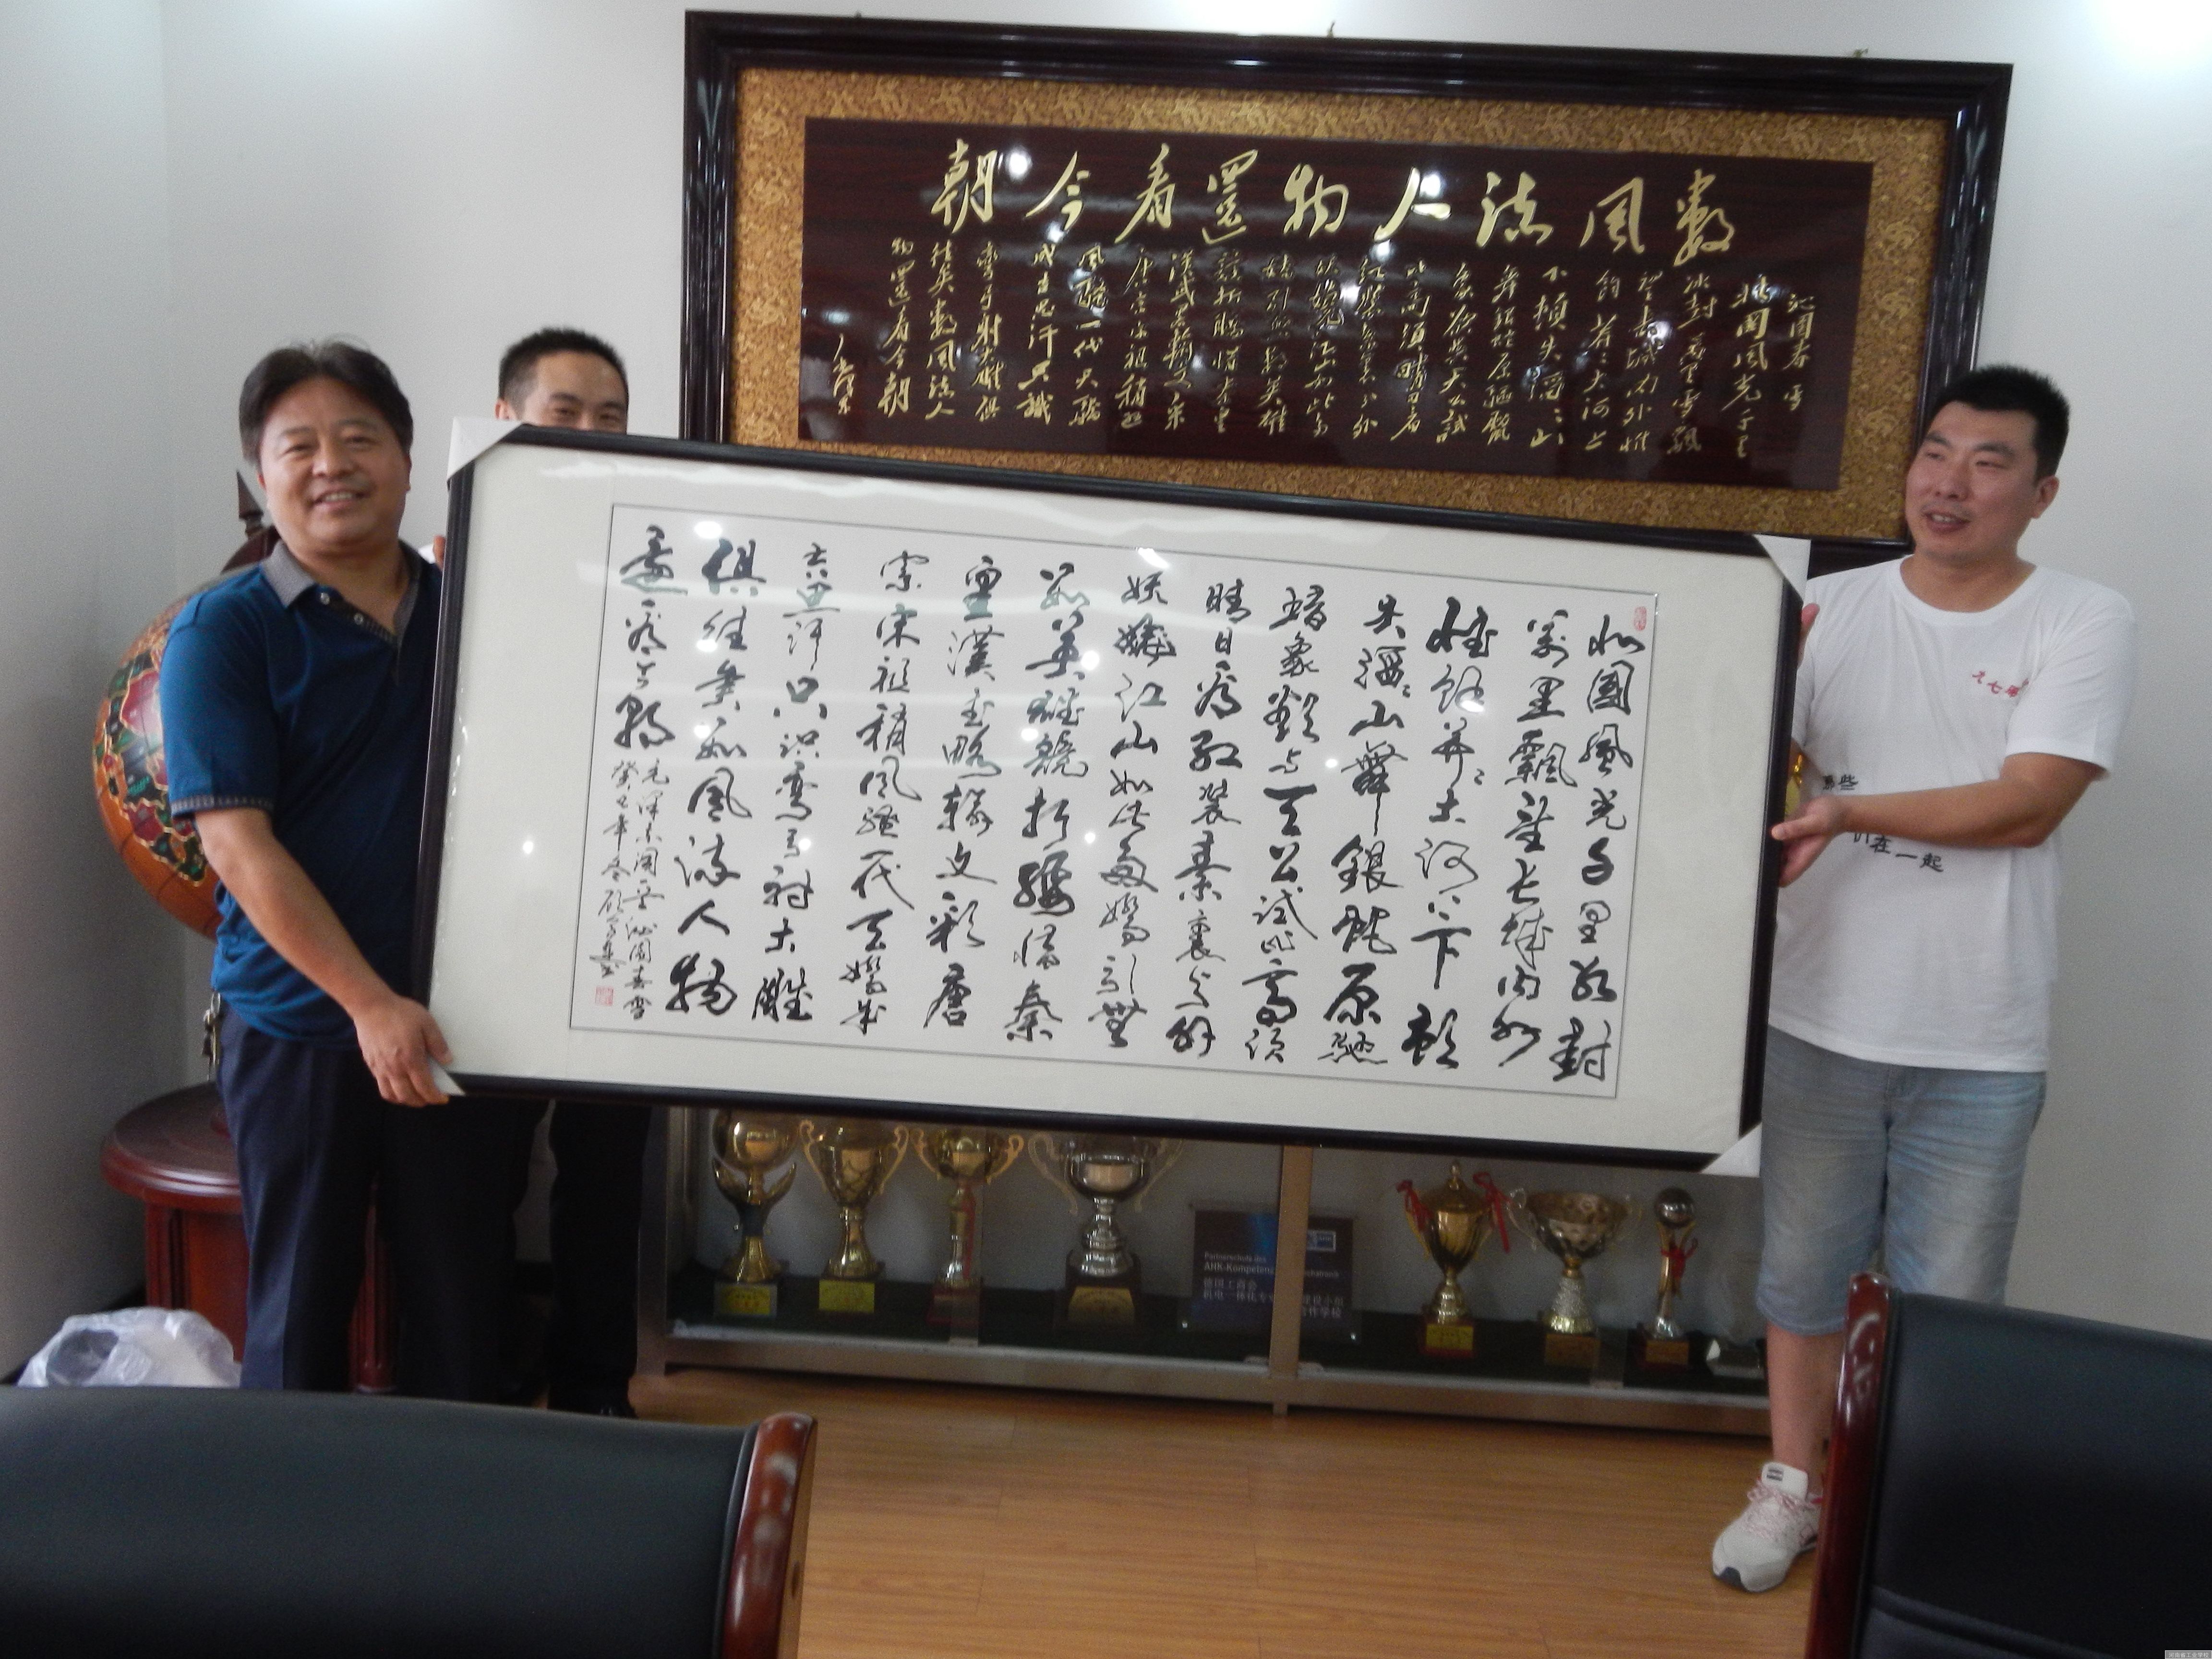 数风流人物还看今朝
沁园春 雪
北国风光千里
冰封万里雪飘
望长城内外惟
馀莽莽大河上
下顿失滔滔山
舞银蛇原驰蜡
象欲与天公试
比高须晴日看
红装素裹分外
妖娆江山如此多
娇引无数英雄
竞折腰惜秦皇
汉武略输文采
唐宗宋祖稍逊
风骚一代天骄
成吉思汗只识
弯弓射大雕俱
往矣数风流人
物还看今朝
毛泽东
北國風光千里冰封
萬里雪飄望长城内外
惟餘莽莽大河上下頓
失滔滔山舞銀蛇原馳
蠟象欲与天公试比高須
晴日看红装素裹分外
妖嬈江山如此多嬌引無
數英雄競折腰惜秦
皇漢武略輸文彩唐
宗宋祖稍風騷一代天嬌成
吉思汗只识弯弓射大雕
俱往矣數風流人物
還看今朝
毛泽东词一首沁園春雪
癸巳年
在一起
Partnerschule des
AHK-Kompetenz
德国工商会
机电一体化专
合作学校
河南省工业学校